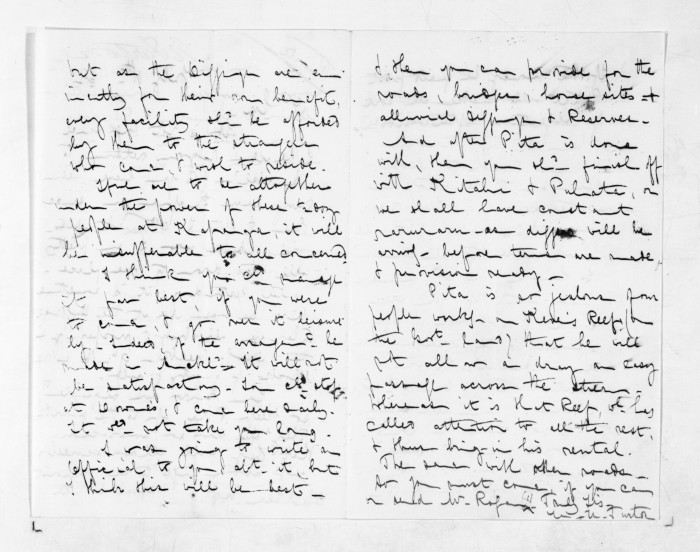 but as the Diggings are em-
inently for their own benefit,
every facility shd be afforded
by them to the strangers
who come, & wish to reside.
If we are to be altogether
under the power of these
people at Kapanga, it will
be insufferable to all concerned.
I think you cd manage
it far best, if you were
to come & go over it leisure
ly. Indeed if the arrangemt be
made in Auckld it will not
be satisfactory. You cd stop
at , & come here daily.
It wd not take you long.
I was going to write an
Official to you abt it, but
I think this will be best -
& then you can provide for the
roads, bridges, house sites &
alluvial diggings & Reserves -
And after Pita is done
with, then you shd finish off
with Kitahi & Paknata, or
we shall have constant
as diggers will be
arriving before terms are made,
& provision ready -
Pita is so jealous of our
people working on Keven's Reef, (on
the land) that he will
not allow a dray an easy
passage across the stream -
Whereas it is that Reef, wh has
called attention to all the rest,
& thus brings in his rental.
The same with other roads -
So you must come if you can
or send Mr. Rogan. Truly Yrs